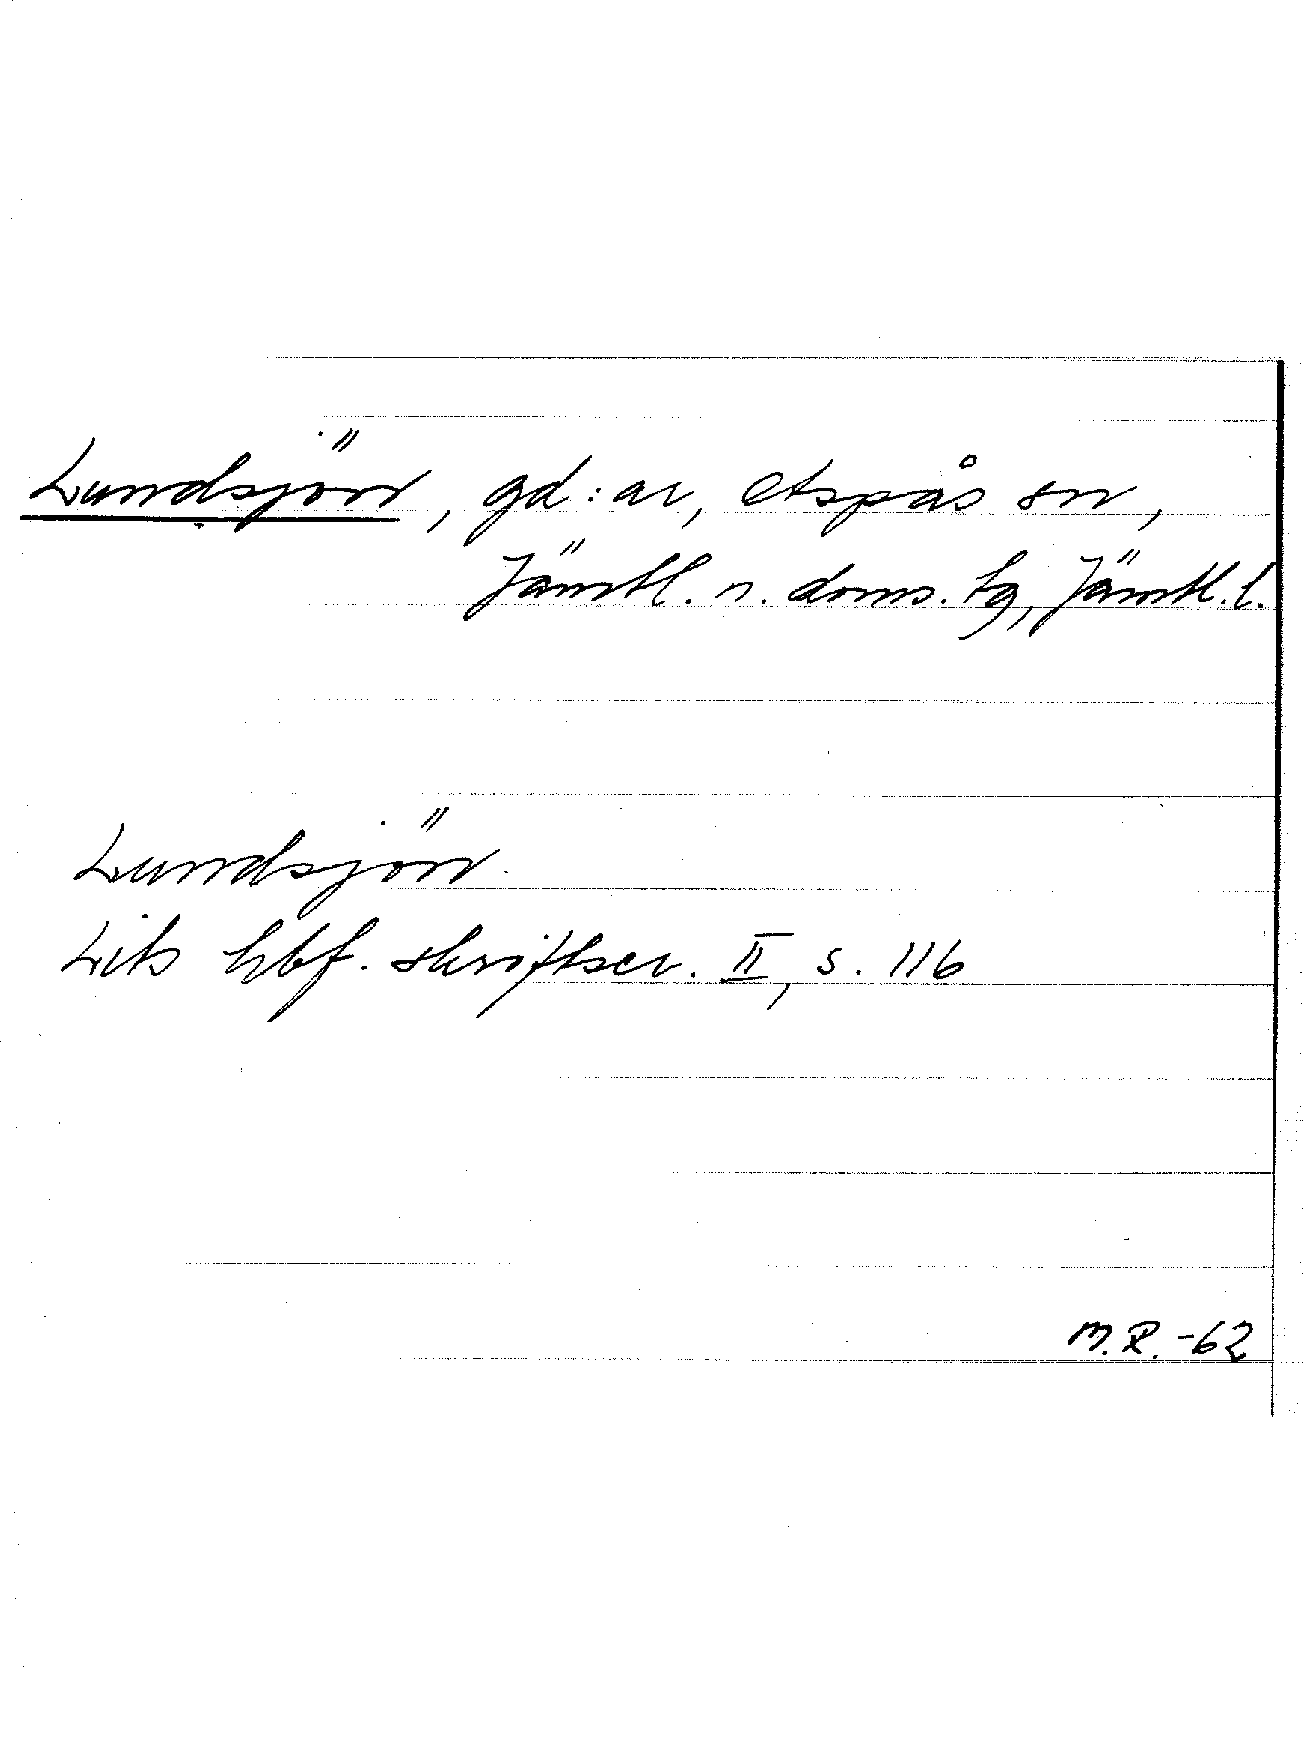 Lundsjön, gd:ar, Aspås sn,
Jämtl. n. doms. tg, Jämtl. l.
Lundsjön
Lits hbf. skriftser. II, s. 116
M.R. -62